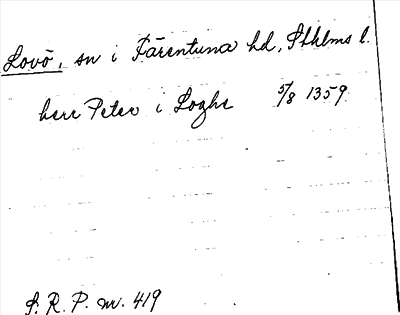 Lovö, sn i Färentuna hd, Sthlms l.
herr Peter i Loghe 5/8 1359
S. R. P. nr. 419